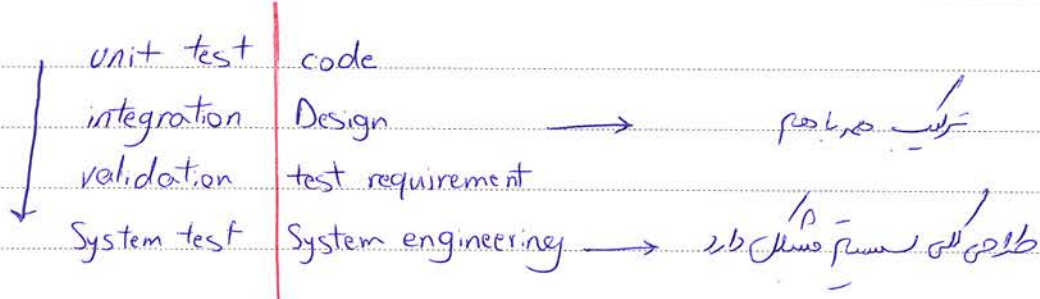 unit test code
integration Design → ترکیب همه باهم
validation test requirement
System test System engineering → طراحی کلی سیستم مشکل دارد